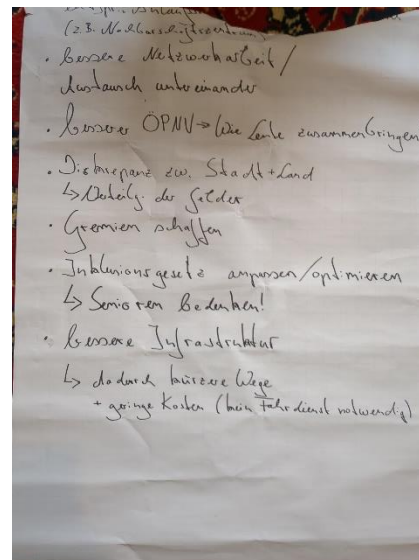 (z.B. Nachbarschaftszentrum)
• bessere Netzwerkarbeit/
Austausch untereinander
• besserer ÖPNV → Wie Leute zusammenbringen
• Diskrepanz zw. Stadt+Land
↳ Verteilg. der Gelder
• Gremien schaffen
• Inklusionsgesetz anpassen/optimieren
↳ Senioren bedenken!
• bessere Infrastruktur
↳ dadurch kürzere Wege
+ geringe Kosten (kein Fahrdienst notwendig)